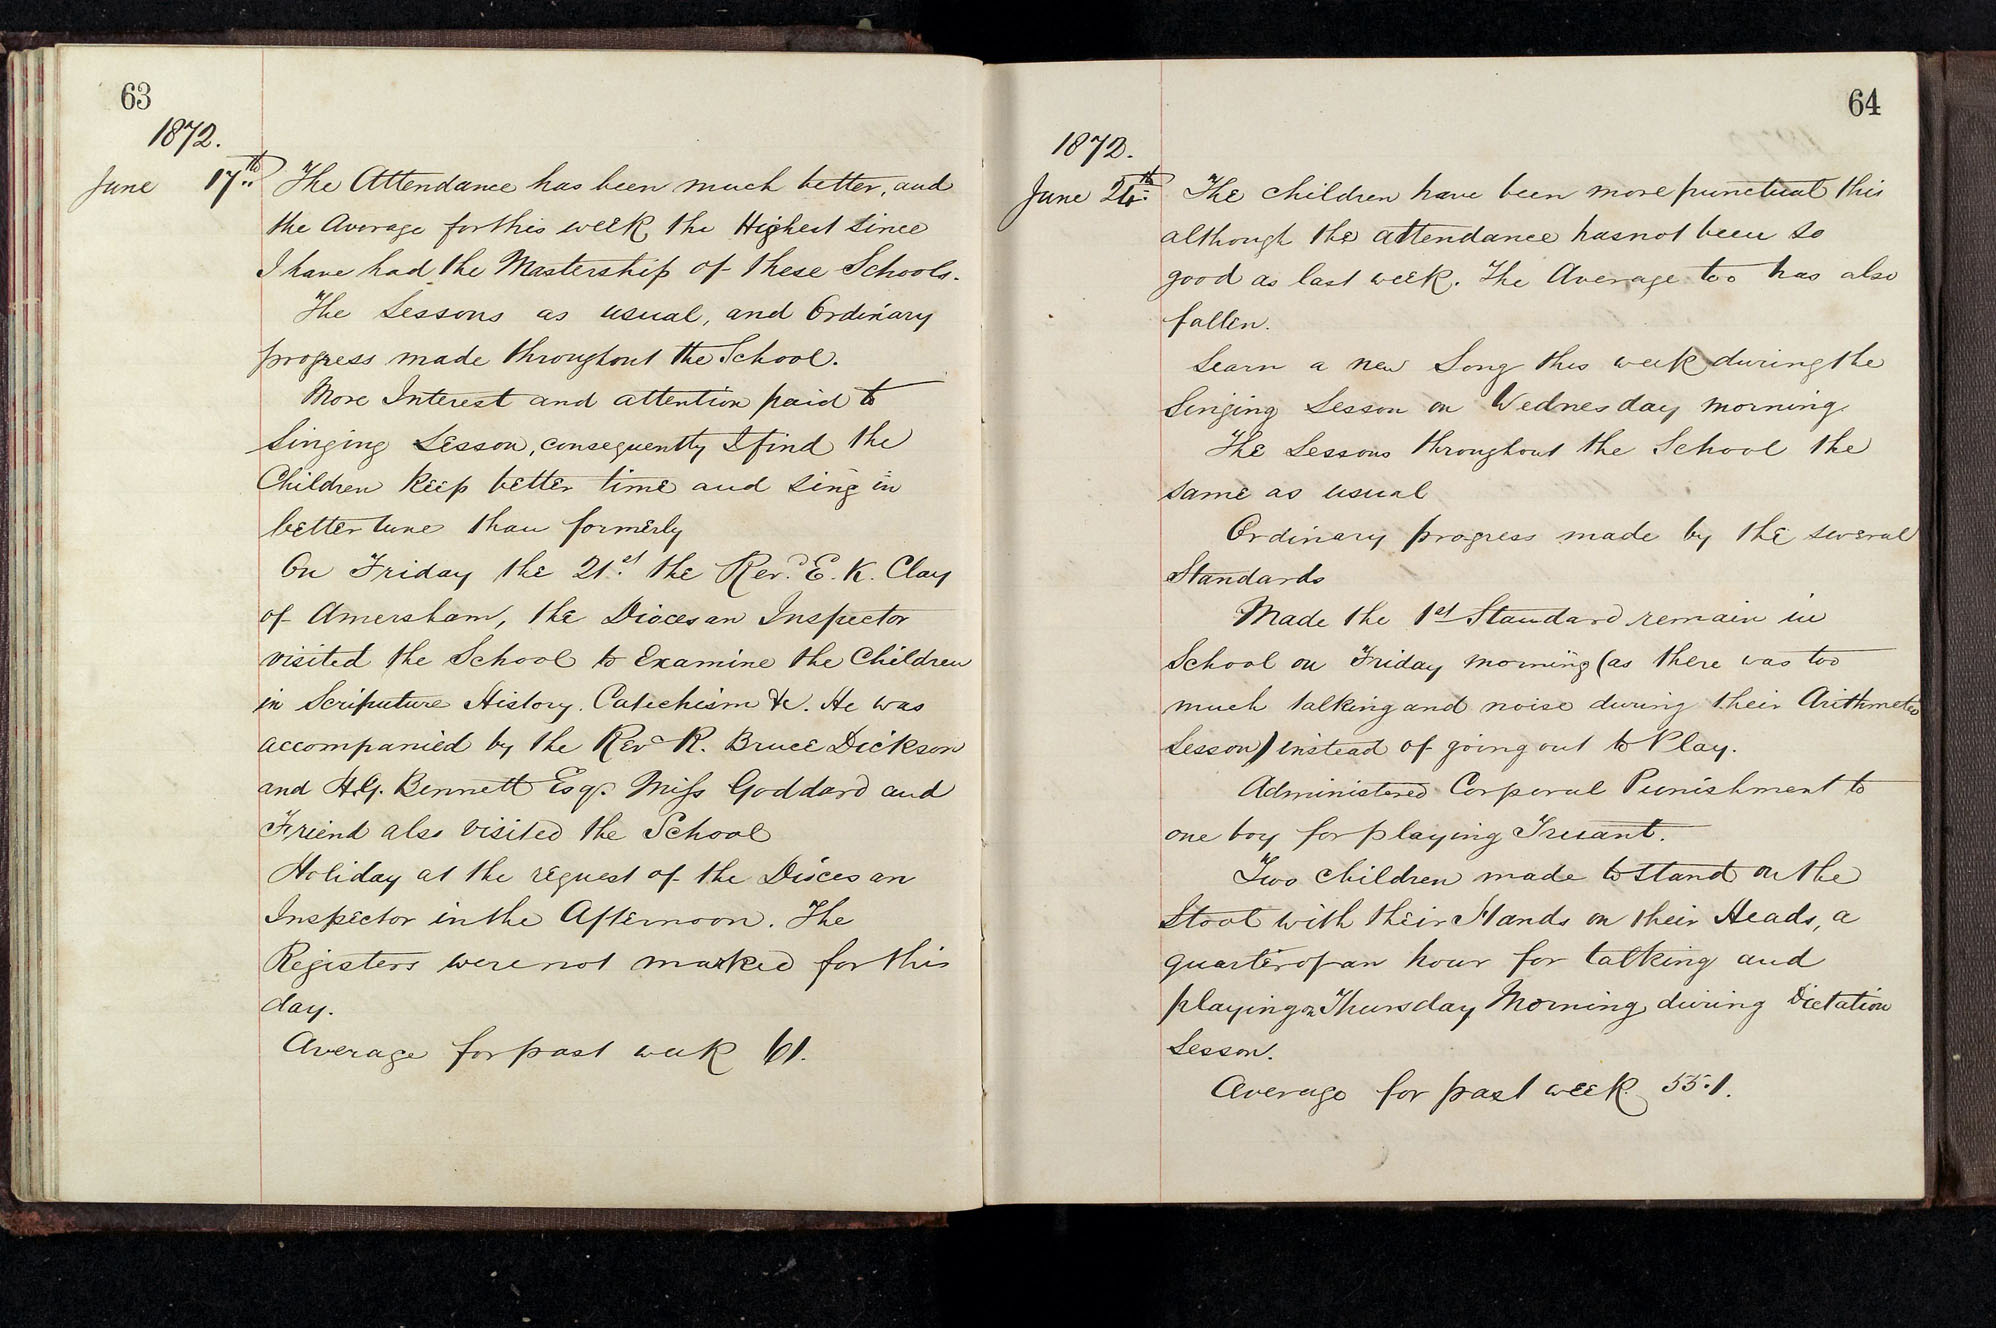 63
1872.
June 17th The Attendance has been much better, and
the Average for this week the Highest since
I have had the Mastership of these Schools.
The Lessons as usual, and Ordinary
progress made throughout the School.
More Interest and attention paid to
Singing Lesson, consequently I find the
Children keep better time and sing in
better tune than formerly
On Friday the 21st the Revd E. K. Clay
of Amersham, the Diocesan Inspector
visited the School to Examine the Children
in Scriputure History. Catechism &c. He was
accompanied by the Revd R. Bruce Dickson
and H.G. Bennett Esq. Miss Goddard and
Friend also visited the School
Holiday at the request of the Diocesan
Inspector in the Afternoon. The
Registers were not marked for this
day.
Average for past week 61.
64
1872.
June 24th The children have been more punctual this
although the attendance has not been so
good as last week. The Average too has also
fallen.
Learn a new Song this week during the
Singing Lesson on Wednesday morning.
The Lessons throughout the School the
same as usual
Ordinary progress made by the several
Standards
Made the 1st Standard remain in
School on Friday morning (as there was too
much talking and noise during their Arithmetic
Lesson) instead of going out to Play.
Administered Corporal Punishment to
one boy for playing Truant.
Two children made to stand on the
Stool with their Hands on their Heads, a
quarter of an hour for talking and
playing on Thursday Morning during Dictation
Lesson.
Average for past week 55.1.